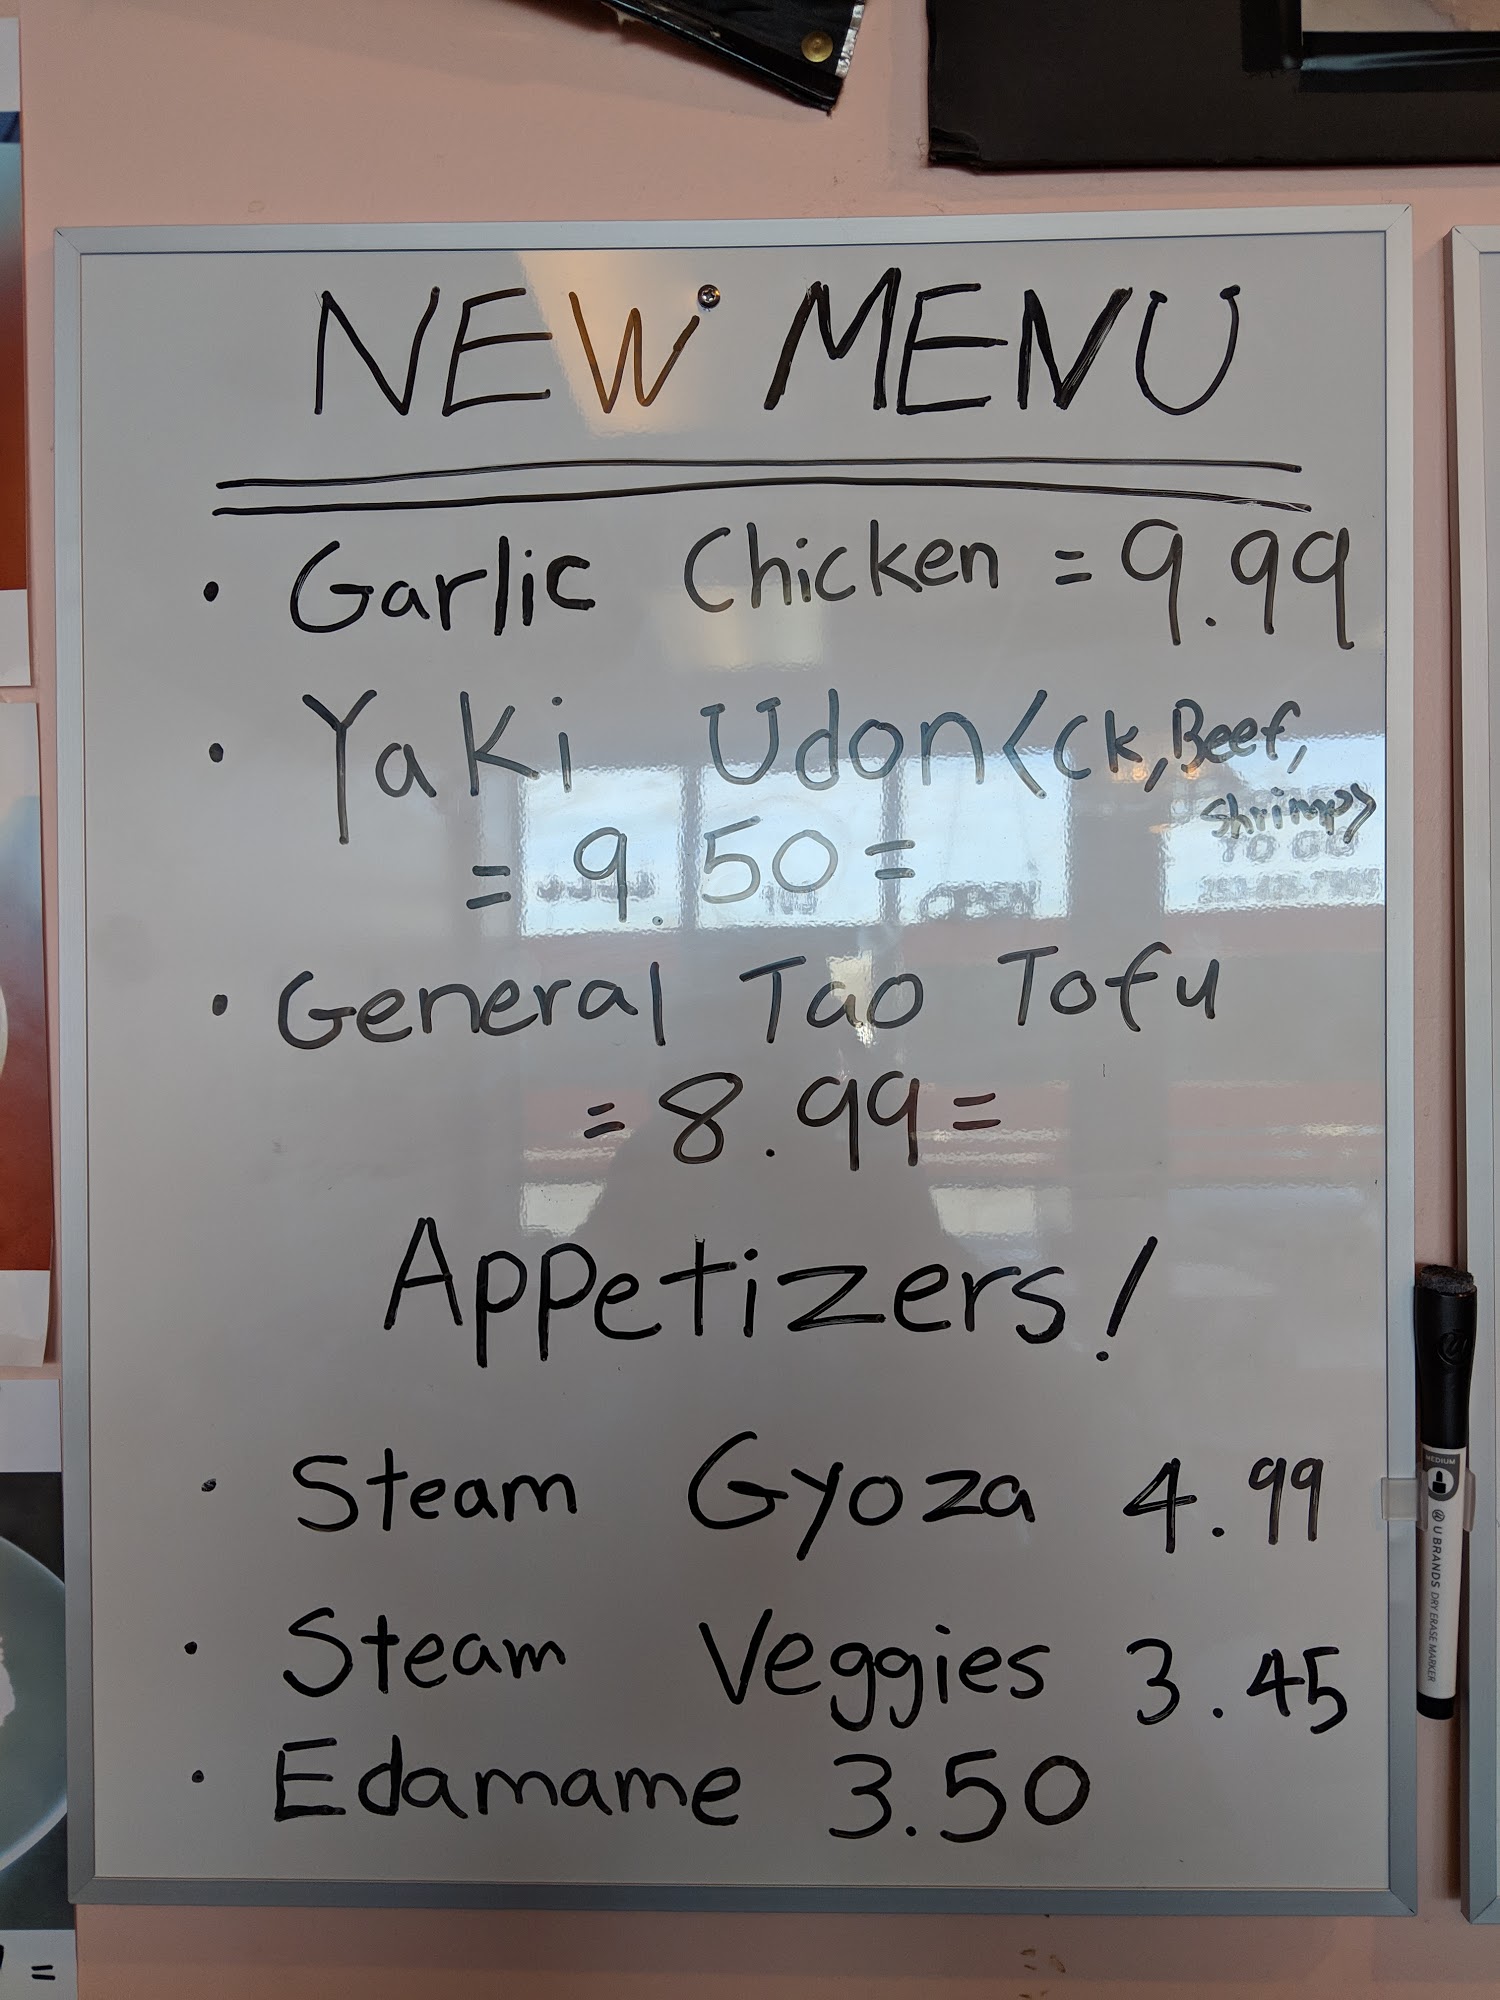 NEW MENU
• Garlic Chicken = 9.99
• Yaki Udon <CK, Beef,
Shrimp>
= 9.50 =
• General Tao Tofu
= 8.99 =
Appetizers!
• Steam Gyoza 4.99
• Steam Veggies 3.45
• Edamame 3.50
MEDIUM
® U BRANDS DRY ERASE MARKER
TO GO
OPEN
=